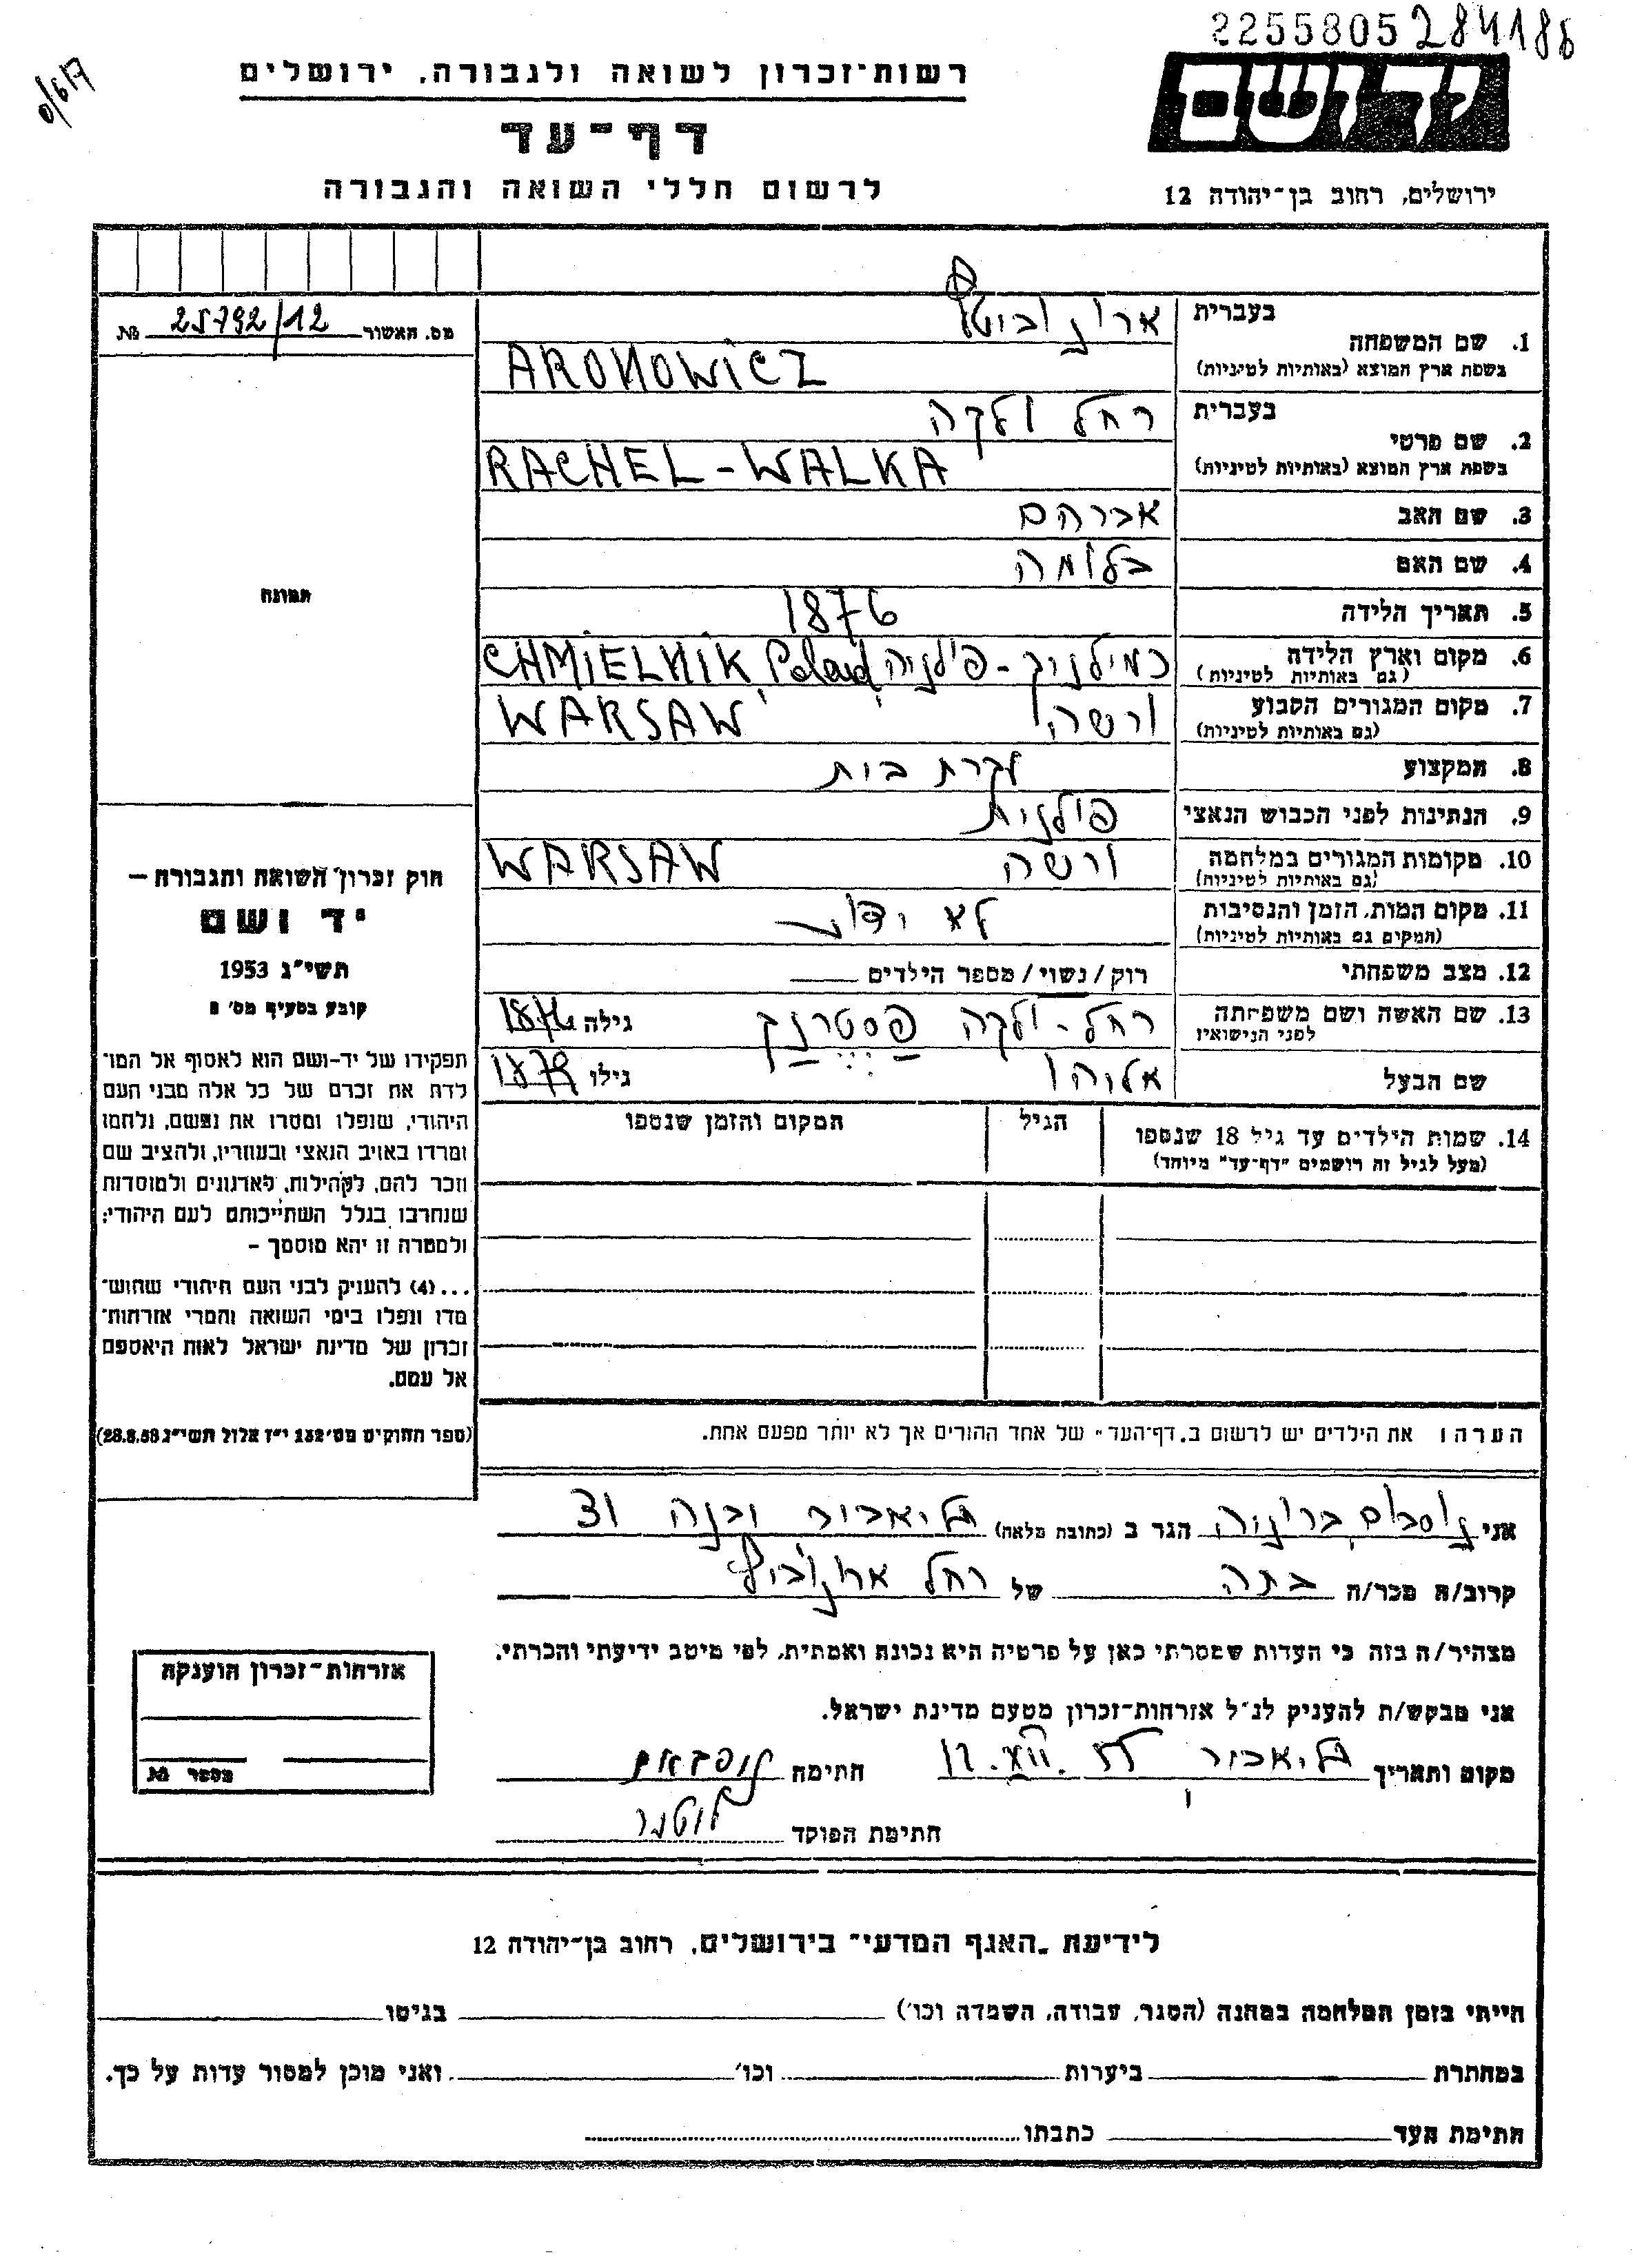 2255805 284186
רשות־זכרון לשואה ולגבורה, ירושלים
יד ושם
דף־עד
לרשום חללי השואה והגבורה
ירושלים, רחוב בן־יהודה 12
מס. האשור 25792/12 №
תמונה
חוק זכרון השואה והגבורה –
יד ושם
תשי"ג 1953
קובע בסעיף מס' 2
תפקידו של יד־ושם הוא לאסוף אל המו־
לדת את זכרם של כל אלה מבני העם
היהודי, שנפלו ומסרו את נפשם, נלחמו
ומרדו באויב הנאצי ובעוזריו, ולהציב שם
וזכר להם, לקהילות, לארגונים ולמוסדות
שנחרבו בגלל השתייכותם לעם היהודי;
ולמטרה זו יהא מוסמך –
...(4) להעניק לבני העם היהודי שהוש־
מדו ונפלו בימי השואה והמרי אזרחות־
זכרון של מדינת ישראל לאות היאספם
אל עמם.
(ספר החוקים מס' 132 י"ז אלול תשי"ג 28.8.53)
1. שם המשפחה בעברית ארונוביץ
בשפת ארץ המוצא (באותיות לטיניות) ARONOWICZ
2. שם פרטי בעברית רחל ולקה
בשפת ארץ המוצא (באותיות לטיניות) RACHEL-WALKA
3. שם האב אברהם
4. שם האם בלומה
5. תאריך הלידה 1876
6. מקום וארץ הלידה (גם באותיות לטיניות) כמילניק - פולניה CHMIELNIK Poland
7. מקום המגורים הקבוע (גם באותיות לטיניות) ורשה WARSAW
8. המקצוע עקרת בית
9. הנתינות לפני הכבוש הנאצי פולנית
10. מקומות המגורים במלחמה (גם באותיות לטיניות) ורשה WARSAW
11. מקום המות, הזמן והנסיבות (המקום גם באותיות לטיניות) לא ידוע
12. מצב משפחתי רוק/נשוי/מספר הילדים
13. שם האשה ושם משפחתה לפני הנישואין רחל-ולקה פסטרנק גילה 1876
שם הבעל אליהו גילו 1879
14. שמות הילדים עד גיל 18 שנספו (מעל לגיל זה רושמים "דף־עד" מיוחד) הגיל המקום והזמן שנספו
הערה: את הילדים יש לרשום ב"דף־העד" של אחד ההורים אך לא יותר מפעם אחת.
אני הגר ב (כתובת מלאה) תל-אביב
קרוב/ה מכר/ה בתה של רחל ארונוביץ
מצהיר/ה בזה כי העדות שמסרתי כאן על פרטיה היא נכונה ואמתית, לפי מיטב ידיעתי והכרתי.
אני מבקש/ת להעניק לנ"ל אזרחות־זכרון מטעם מדינת ישראל.
מקום ותאריך תל-אביב חתימה
חתימת הפוקד
אזרחות־זכרון הוענקה
מספר №
לידיעת "האגף המדעי" בירושלים, רחוב בן־יהודה 12
הייתי בזמן המלחמה במחנה (הסגר, עבודה, השמדה וכו') בגיטו
במחתרת ביערות וכו' ואני מוכן למסור עדות על כך.
חתימת העד כתבתו